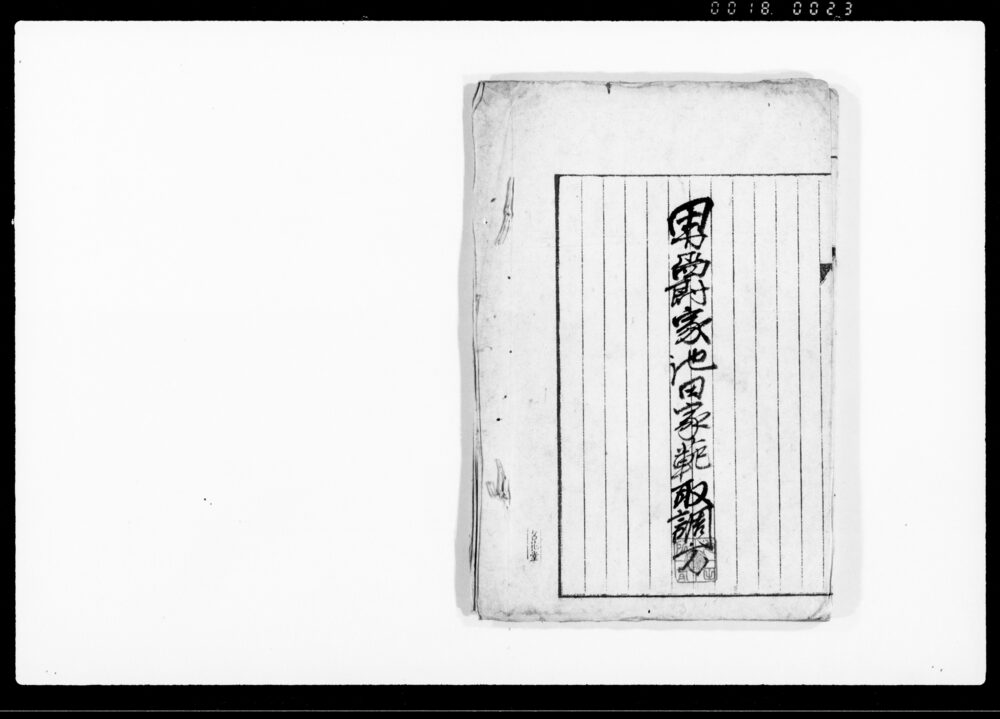 0018 0023
男爵家池田家範取調方